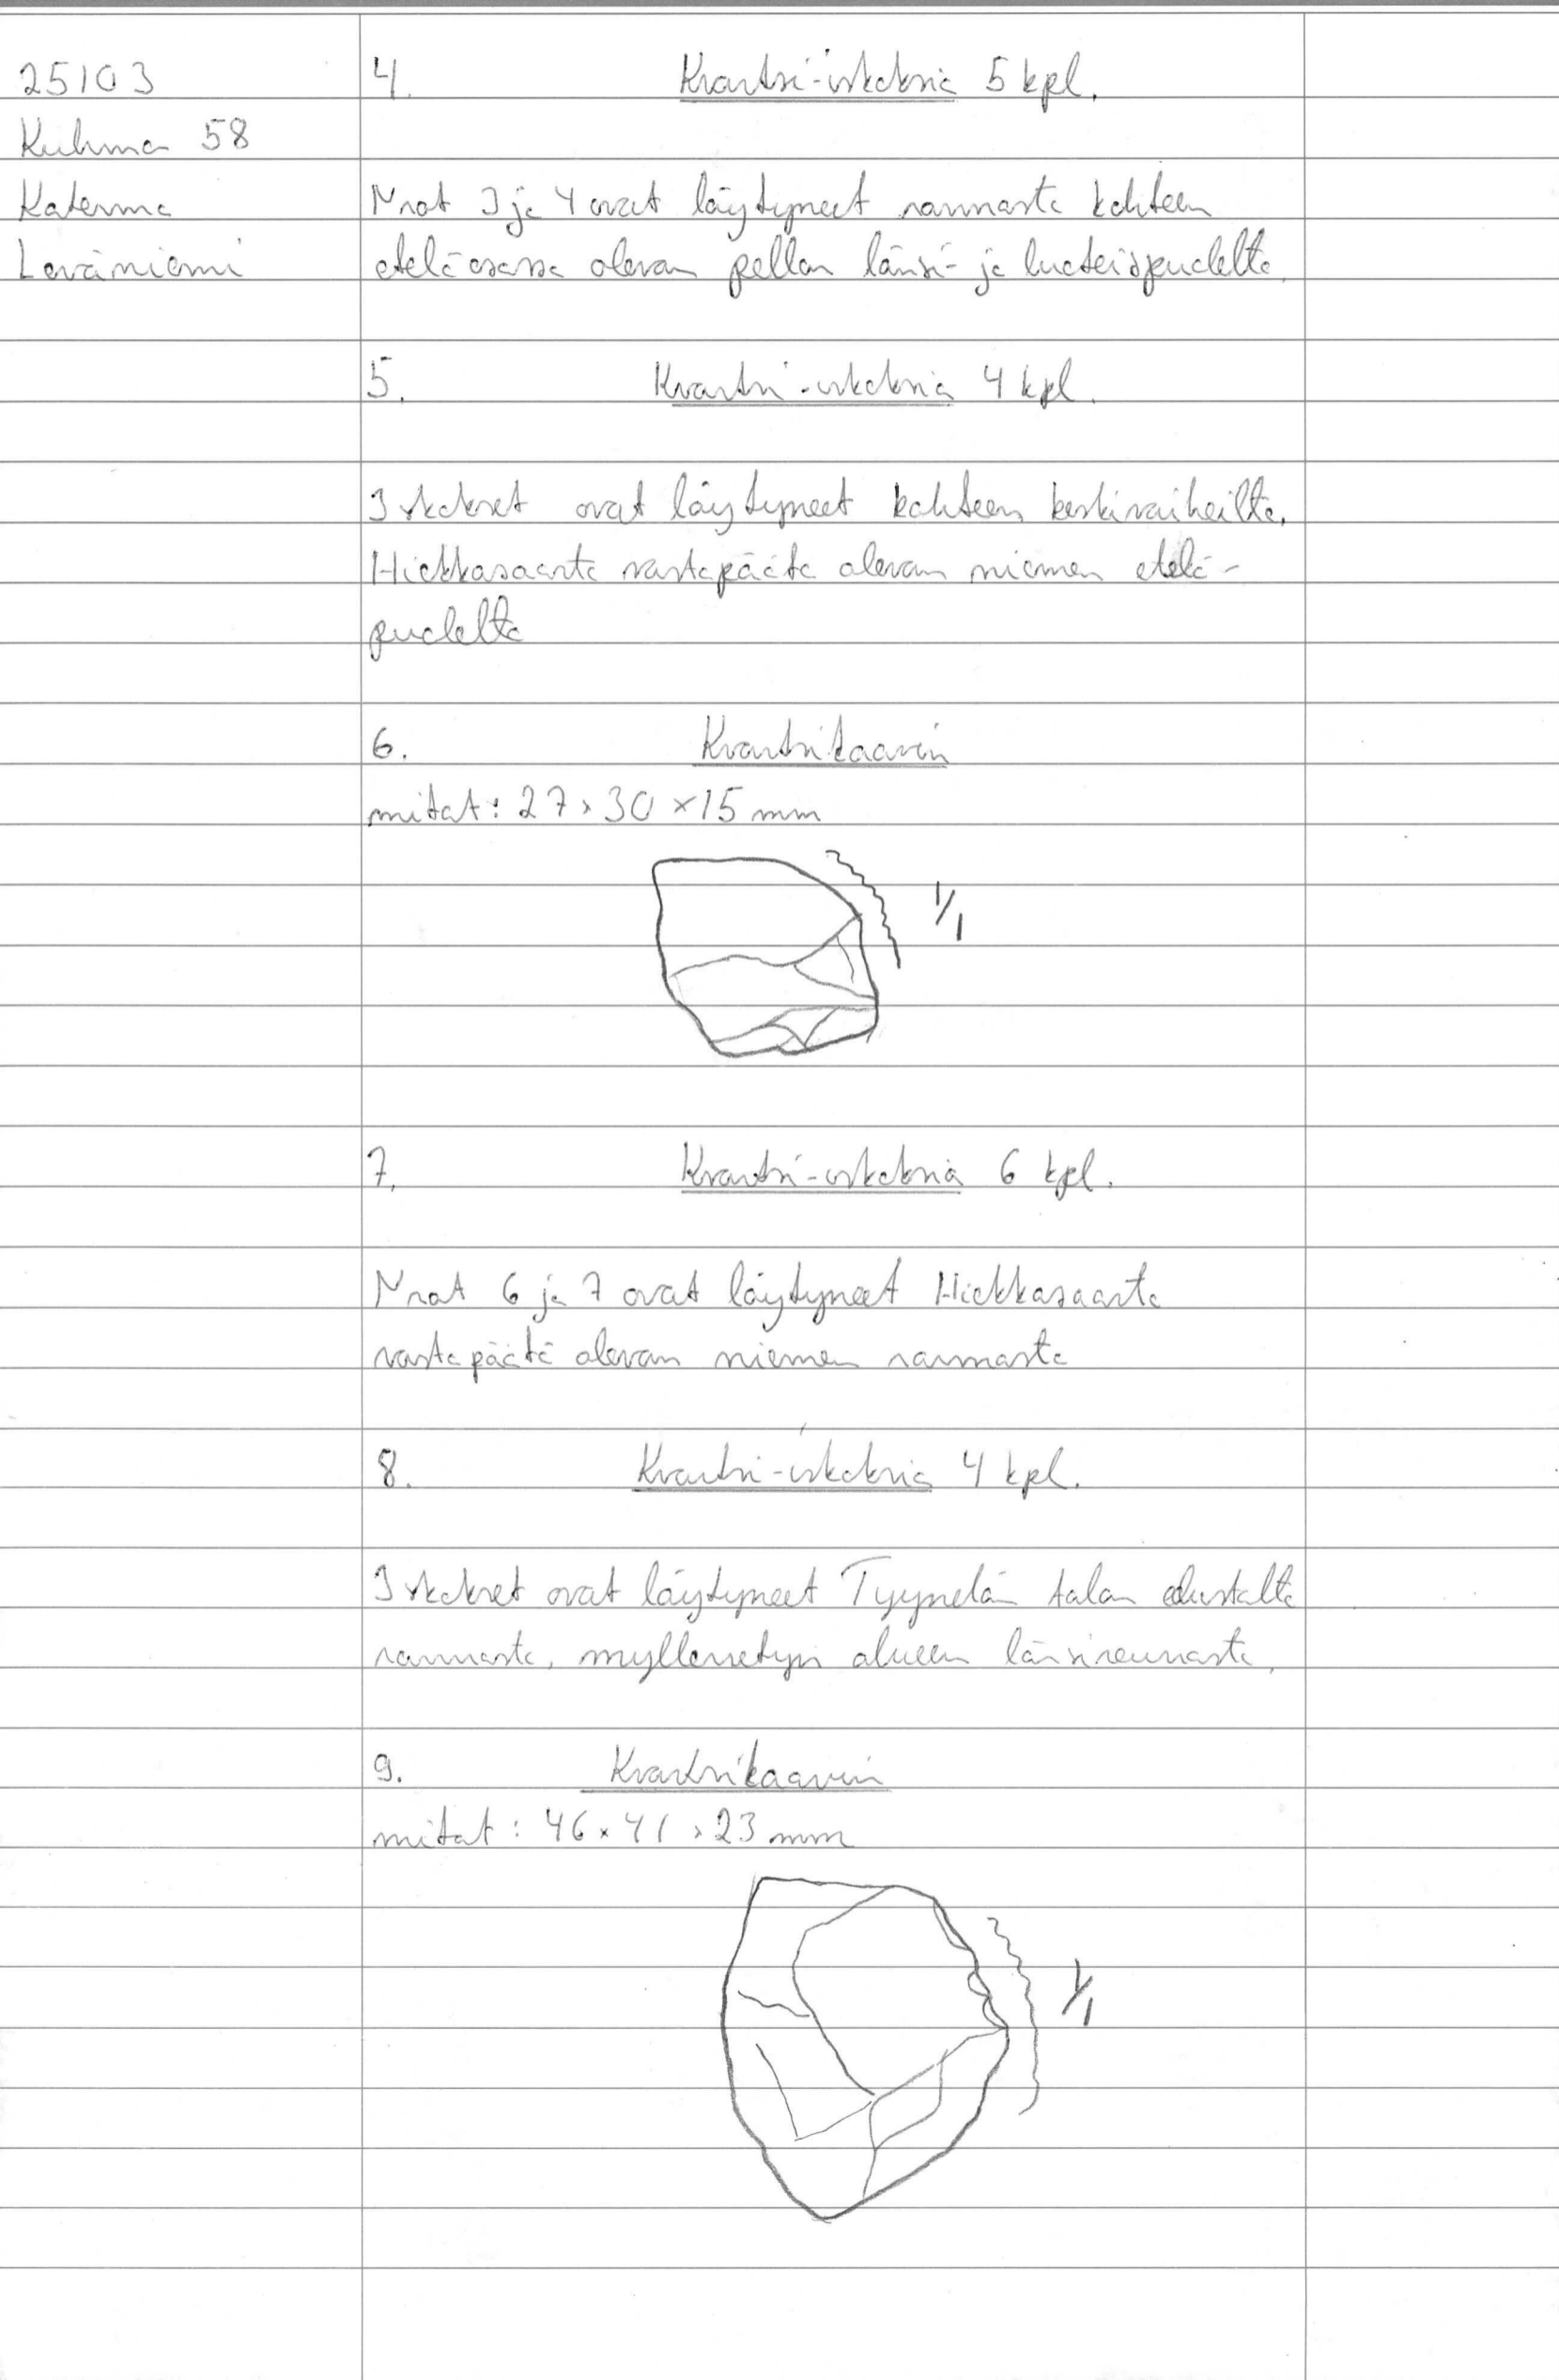 25103
Kuhmo 58
Katerma
Leväniemi
4. Kvartsi-iskoksia 5 kpl.
Nrot 3 ja 4 ovat löytyneet rannasta kohteen
eteläosassa olevan pellon länsi- ja luoteispuolelta.
5. Kvartsi-iskoksia 4 kpl.
Iskokset ovat löytyneet kohteen keskivaiheilta,
Hiekkasaarta vastapäätä olevan niemen etelä-
puolelta
6. Kvartsikaavin
mitat: 27×30×15 mm
1/1
7. Kvartsi-iskoksia 6 kpl.
Nrot 6 ja 7 ovat löytyneet Hiekkasaarta
vastapäätä olevan niemen rannasta
8. Kvartsi-iskoksia 4 kpl.
Iskokset ovat löytyneet Tyynelän talon edustalta
rannasta, myllerretyn alueen länsireunasta.
9. Kvartsikaavin
mitat: 46×41×23 mm
1/1